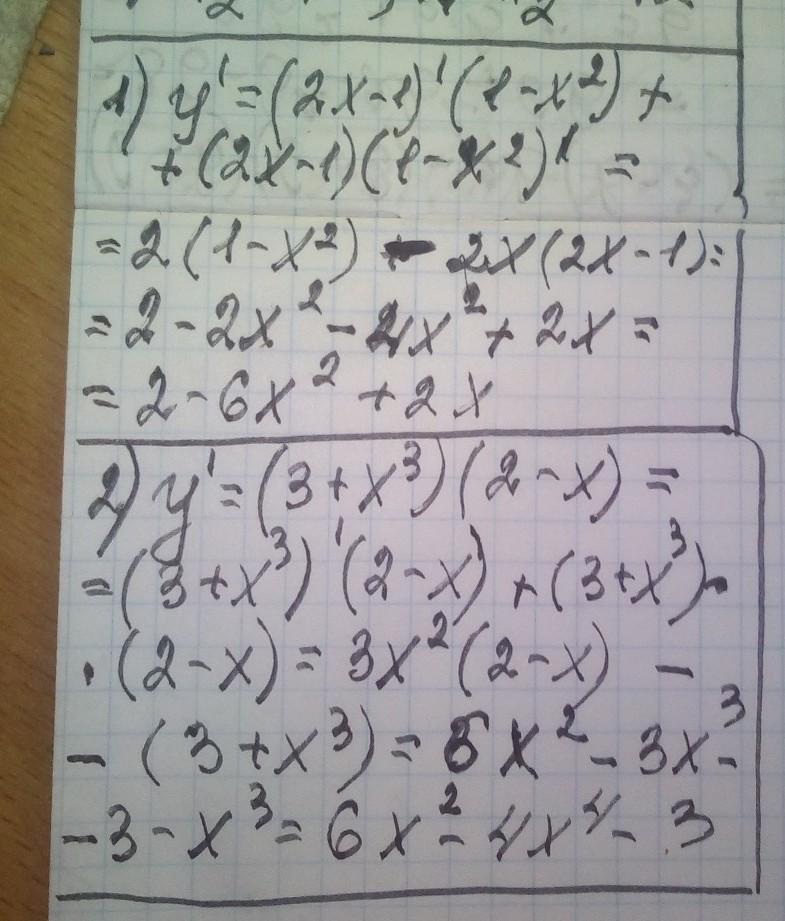 1) y' = (2x-1)'(1-x²) +
+ (2x-1)(1-x²)' =
= 2(1-x²) - 2x(2x-1) =
= 2 - 2x² - 4x² + 2x =
= 2 - 6x² + 2x
2) y' = (3+x³)(2-x) =
= (3+x³)'(2-x) + (3+x³)·
· (2-x) = 3x²(2-x) -
- (3+x³) = 6x² - 3x³ -
- 3 - x³ = 6x² - 4x⁴ - 3